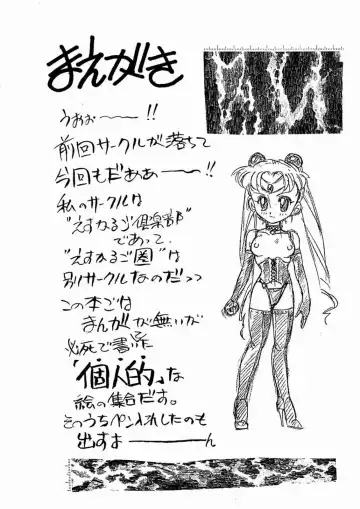 まえがき
うおぉ〜〜!!
前回サークルが落ちて
今回もだああ〜!!
私のサークルは
"えすなるご倶楽部"
であって、
"えすなるご圏"は
別サークルなのだっっ
この本では
まんがが無いが
必死で書いた
「個人的」な
絵の集合だす。
そのうちペン入れしたのも
出すよ〜〜ん